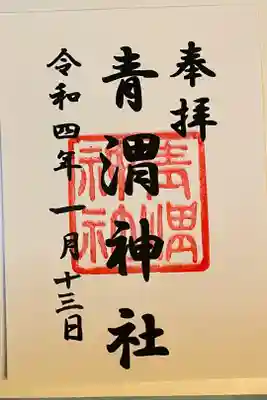 奉拝
青渭神社
青渭神社
令和四年一月十三日